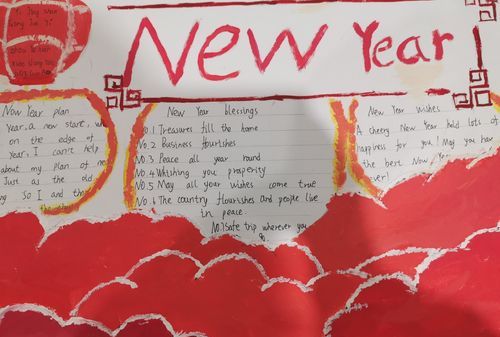 New Year
New Year plan
Year. a new start, wh
on the edge of
Year. I can't help
about my plan of ne
Just as the old
So I and the
New Year blessings
No.1 Treasures fill the home
No.2 Business flourishes
No.3 Peace all year round
No.4 Whishing you prosperity
No.5 May all your wishes come true
No.6 The country flourishes and people live
in peace.
No.7 Safe trip wherever you
go
New Year wishes
A cheery New Year hold lots of
happiness for you! May you hav
the best New Year
ever!